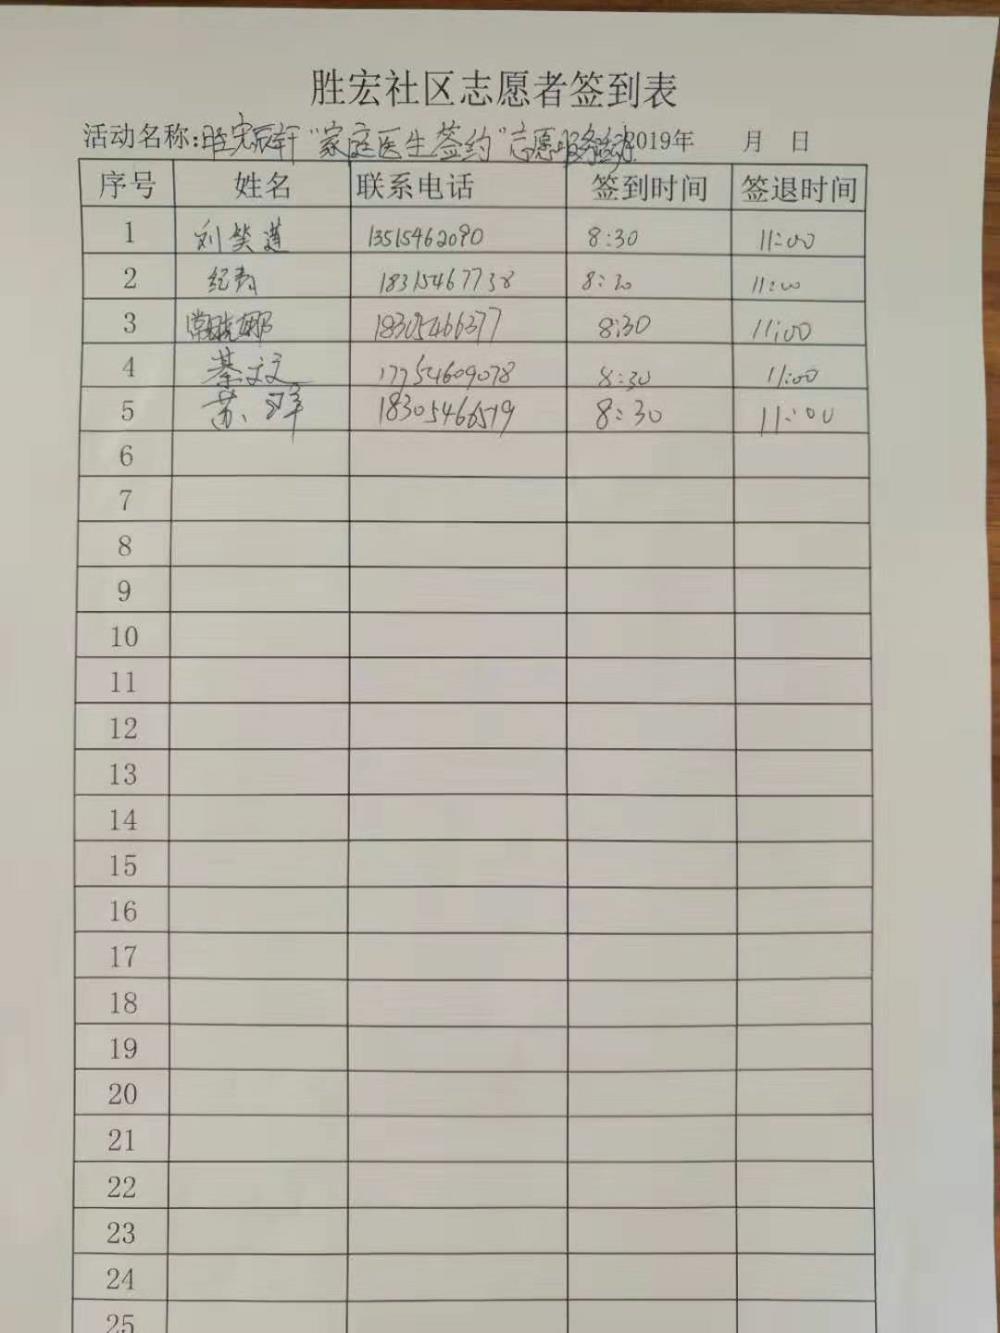 胜宏社区志愿者签到表
活动名称:胜宏宸轩“家庭医生签约”志愿服务活动 2019年 月 日
序号 姓名 联系电话 签到时间 签退时间
1 刘笑莲 13515462090 8:30 11:00
2 纪青 18315467738 8:30 11:00
3 常晓娜 18305466377 8:30 11:00
4 綦文文 17754609078 8:30 11:00
5 苏洋 18305466519 8:30 11:00
6
7
8
9
10
11
12
13
14
15
16
17
18
19
20
21
22
23
24
25